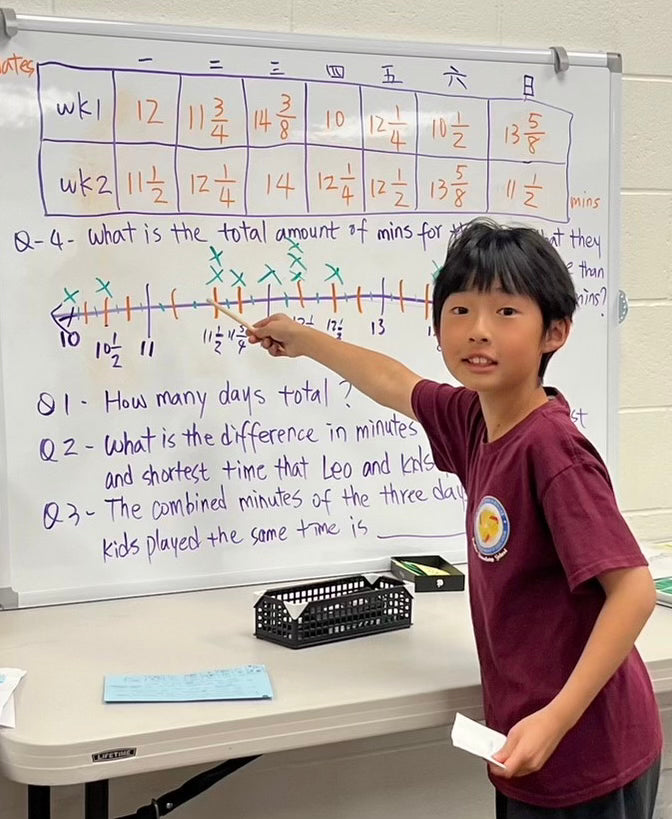 ates 一 二 三 四 五 六 日
wk1 12 11 3/4 14 3/8 10 12 1/4 10 1/2 13 5/8
wk2 11 1/2 12 1/4 14 12 1/4 12 1/2 13 5/8 11 1/2 mins
Q-4- what is the total amount of mins for that they
than
mins?
x x x x x x x x x x x
10 10 1/2 11 11 1/2 11 3/4 12 1/2 13
Q1- How many days total?
Q2- What is the difference in minutes st
and shortest time that Leo and kids
Q3- The combined minutes of the three days
kids played the same time is ________
LIFETIME